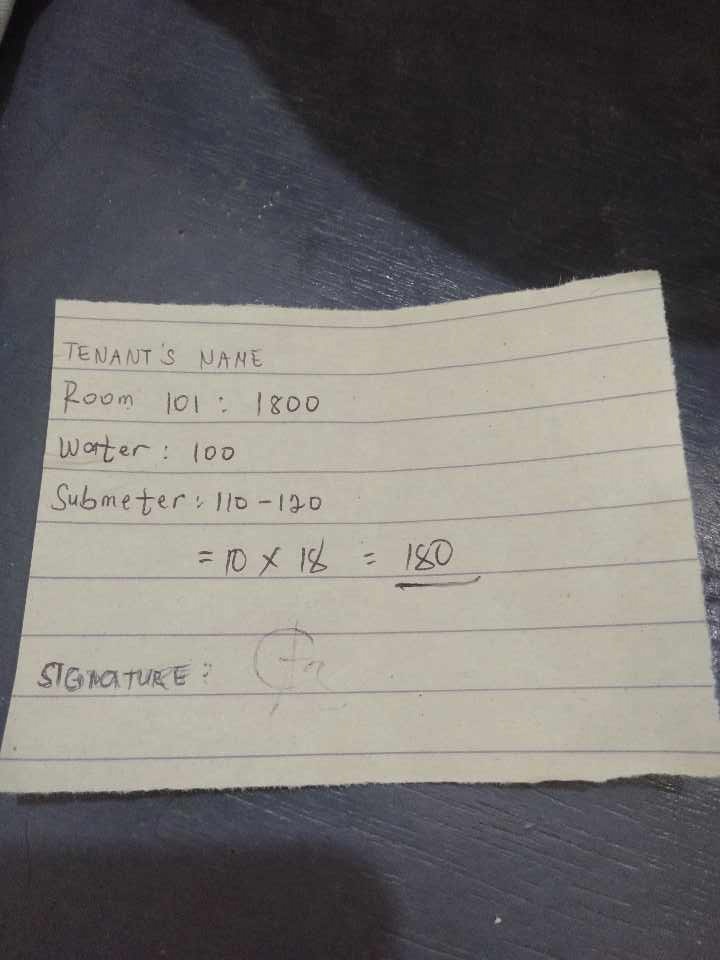 TENANT'S NAME
Room 101: 1800
Water: 100
Submeter: 110-120
= 10 X 18 = 180
SIGNATURE: